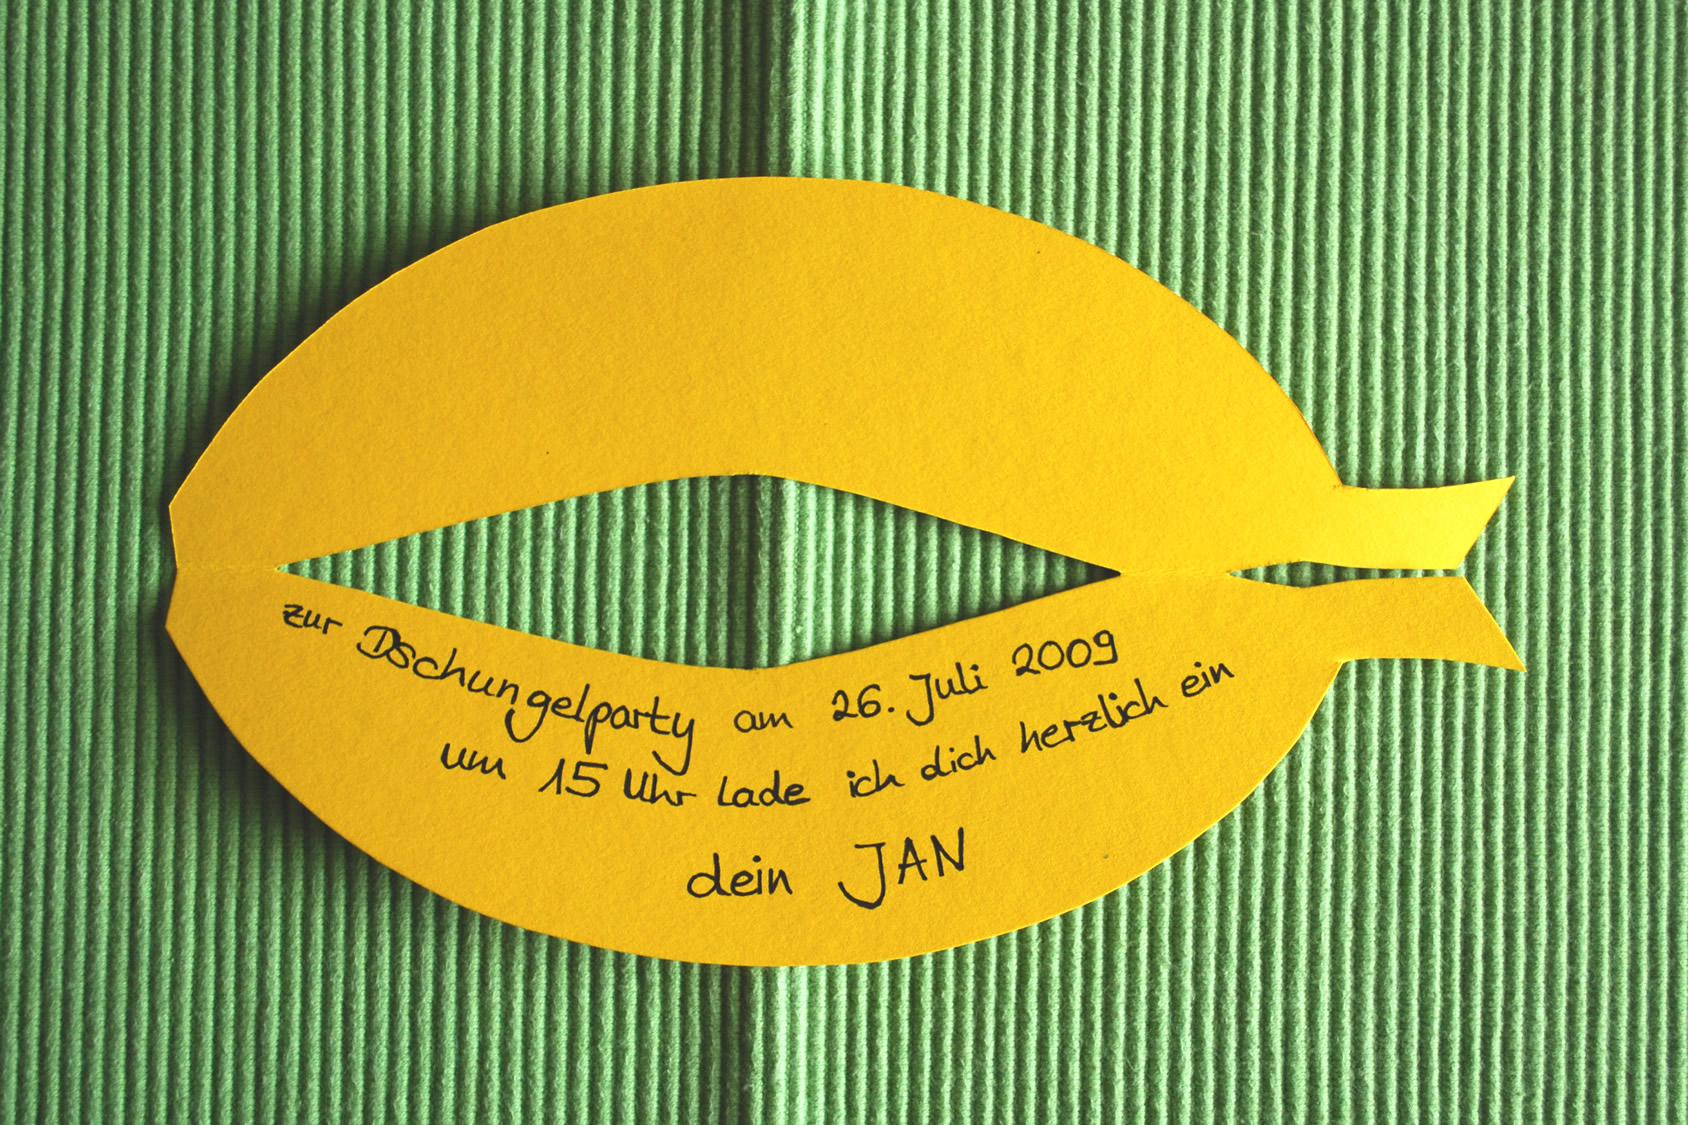 zur Dschungelparty am 26. Juli 2009
um 15 Uhr lade ich dich herzlich ein
dein JAN